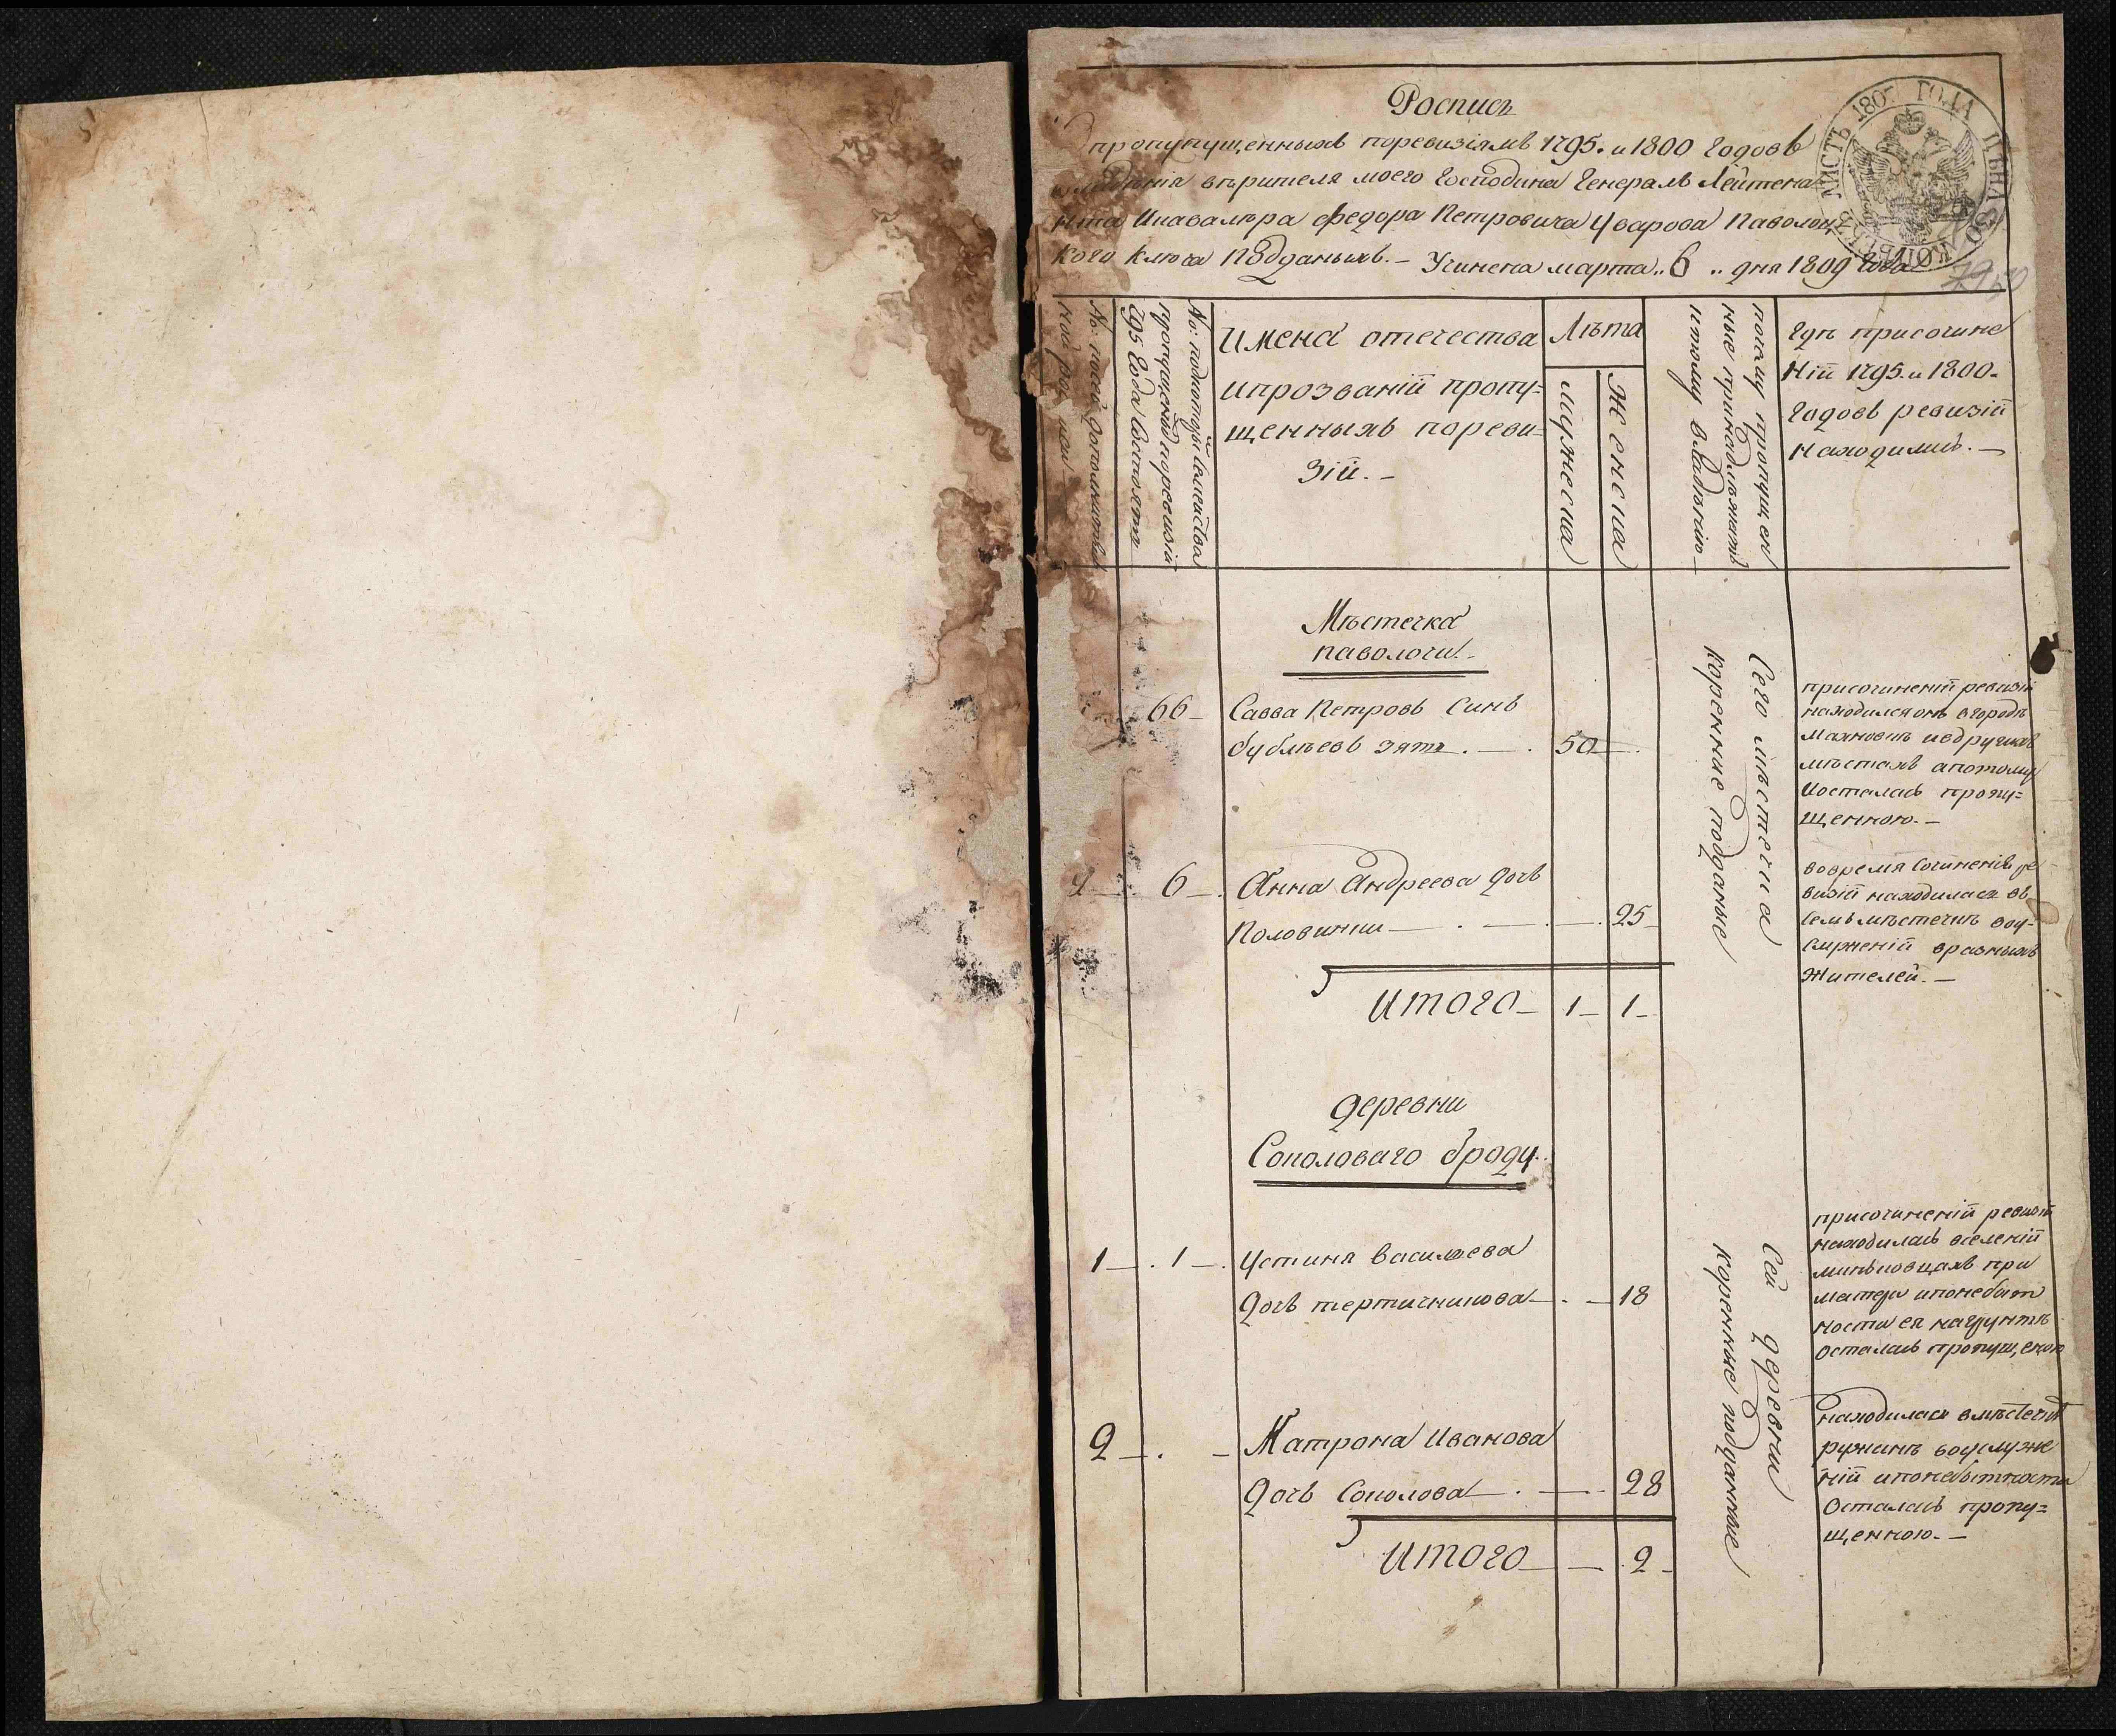 Роспись
пропупущенныхъ поревизіямъ 1795. и 1800 Годовъ
вѣрителя моего Господина Генералъ Лейтена
нта Икавалѣра Федора Петровича Уварова Паволоц
кого ключа Подданыхъ. – Учинена марта „ 6 „ дня 1809 Года
ЛИСТЪ 1807 ГОДА ЦѢНА
КОПѢЕКЪ
№: посей дополнител
ной
№: подкоторой Семейства
пропущеной поревизій
795 Года Состоятъ
Имена отечества
ипрозваній пропу=
щенныхъ пореви=
зій. –
Лѣта
мужеска
женска
почему пропущен
ные принадлежатъ
ктому владѣнію –
Гдѣ присочине
Ніи 1795. и 1800.
Годовъ ревизій
Находились. –
Мѣстечка
паволочи. –
66 –
Савва Петровъ Синъ
бублѣевъ зять . – . 50 – .
Сего мѣстечка
коренние подданые
присочиненій ревизій
находился онъ вгородѣ
Махновкѣ ивдругихъ
мѣстахъ апотому
Иосталсь пропу=
щенною. –
6 – .
Анна Андреева дочь
Половинки — . — . — . 25 –
вовремя Сочиненія ре
визій находилась въ
семъ мѣстечкѣ воу-
служеній вразныхъ
Жителей. –
Итого – 1 – 1 –
деревни
Соколоваго броду.
1 – . 1 – .
Устиня васильева
дочь тертичникова – . – 18
Сей деревни
коренные подданные
присочиненій ревизій
находилась вселеній
миньковцахъ при
матери ипонебыт
ности ея нагрунтѣ
осталась пропущеною
2 – . –
Матрона Иванова
дочь Соколова – . – . 28
находилась вмѣстечкѣ
ружинѣ воуслуже
ніи ипонебытности
Осталась пропу=
щенною. –
Итого – – . 2 –